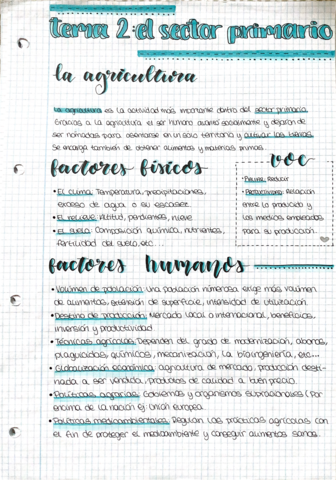 tema 2: el sector primario
la agricultura
La agricultura es la actividad más importante dentro del sector primario.
Gracias a la agricultura el ser humano avanzó socialmente y dejaron de
ser nómadas para asentarse en un solo territorio y cultivar las tierras.
Se encarga también de obtener alimentos y materias primas.
factores físicos
• El clima: Temperatura, precipitaciones,
exceso de agua o su escasez.
• El relieve: Altitud, pendientes, nieve
• El suelo: Composición química, nutrientes,
fertilidad del suelo, etc...
voc
Reducir
• Productividad: Relación
entre lo producido y
los medios empleados
para su producción.
factores humanos
• Volumen de población: una población numerosa exige más volumen
de alimentos, extensión de superficie, intensidad de utilización
• Destino de producción: Mercado local o internacional, beneficios,
inversión y productividad
• Técnicas agrícolas: Dependen del grado de modernización, abonos,
plaguicidas, químicos, mecanización, la bioingeniería, etc...
• Globalización económica: agricultura de mercado, producción desti-
nada a ser vendida, productos de calidad a buen precio.
• Políticas agrarias: Gobiernos y organismos supranacionales (Por
encima de la nación ej Unión europea.
• Políticas medioambientales: Regulan las prácticas agrícolas con
el fin de proteger el medioambiente y conseguir alimentos sanos.